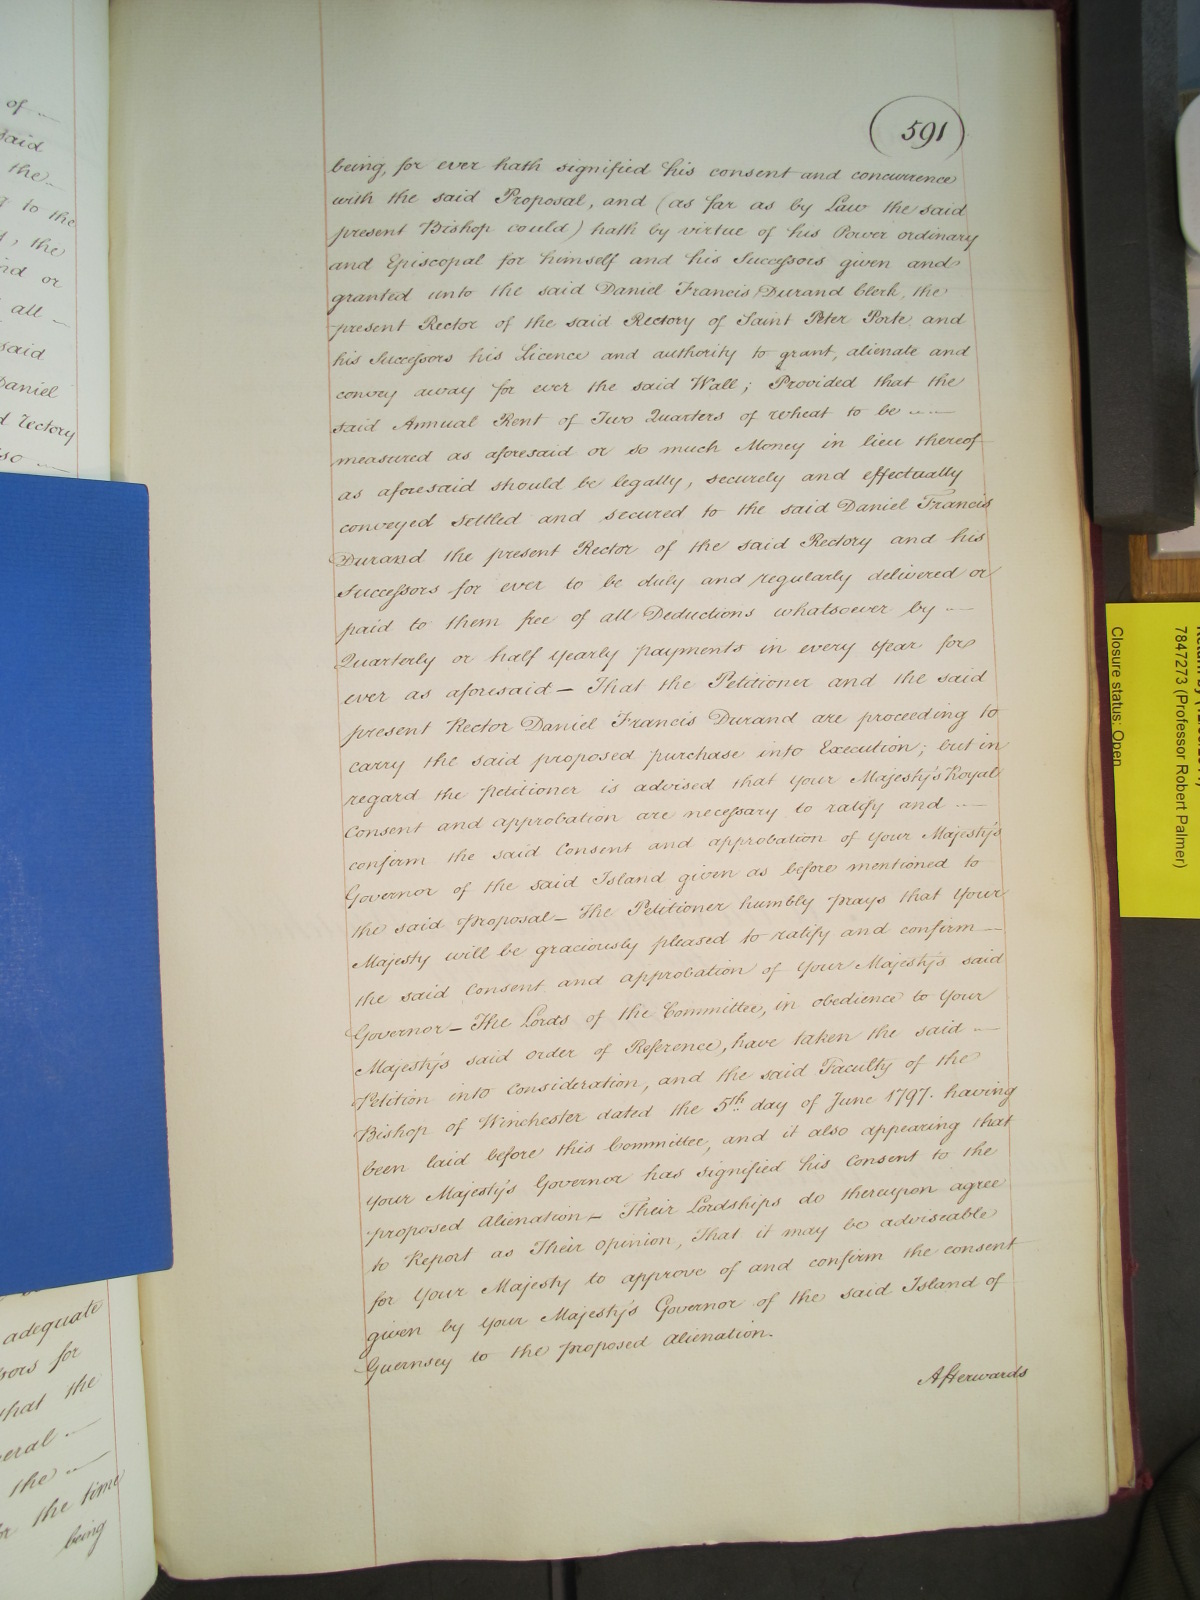 of
said
the
g to the
s, the
ind or
all
said
Daniel
d Rectory
so
adequate
sors for
that the
eral
the
or the time
being
591
being, for ever hath signified his consent and concurrence
with the said Proposal, and (as far as by Law the said
present Bishop could) hath by virtue of his Power ordinary
and Episcopal for himself and his Successors given and
granted unto the said Daniel Francis Durand Clerk, the
present Rector of the said Rectory of Saint Peter Porte, and
his Successors his Licence and authority to grant, alienate and
convey away for ever the said Wall; Provided that the
said Annual Rent of Two Quarters of wheat to be
measured as aforesaid or so much Money in lieu thereof
as aforesaid should be legally, securely and effectually
conveyed settled and secured to the said Daniel Francis
Durand the present Rector of the said Rectory and his
Successors for ever to be duly and regularly delivered or
paid to them free of all Deductions whatsoever by
Quarterly or half yearly payments in every year for
ever as aforesaid — That the Petitioner and the said
present Rector Daniel Francis Durand are proceeding to
carry the said proposed purchase into Execution; but in
regard the Petitioner is advised that your Majesty's Royal
Consent and approbation are necessary to ratify and
confirm the said Consent and approbation of your Majesty's
Governor of the said Island given as before mentioned to
the said Proposal — The Petitioner humbly prays that Your
Majesty will be graciously pleased to ratify and confirm —
the said Consent and approbation of Your Majesty's said
Governor — The Lords of the Committee, in obedience to Your
Majesty's said order of Reference, have taken the said
Petition into consideration, and the said Faculty of the
Bishop of Winchester dated the 5th day of June 1797. having
been laid before this Committee, and it also appearing that
your Majesty's Governor has signified his Consent to the
proposed Alienation — Their Lordships do thereupon agree
to Report as Their Opinion, That it may be adviseable
for Your Majesty to approve of and confirm the consent
given by Your Majesty's Governor of the said Island of
Guernsey to the proposed Alienation.
Afterwards
7847273 (Professor Robert Palmer)
Closure status: Open